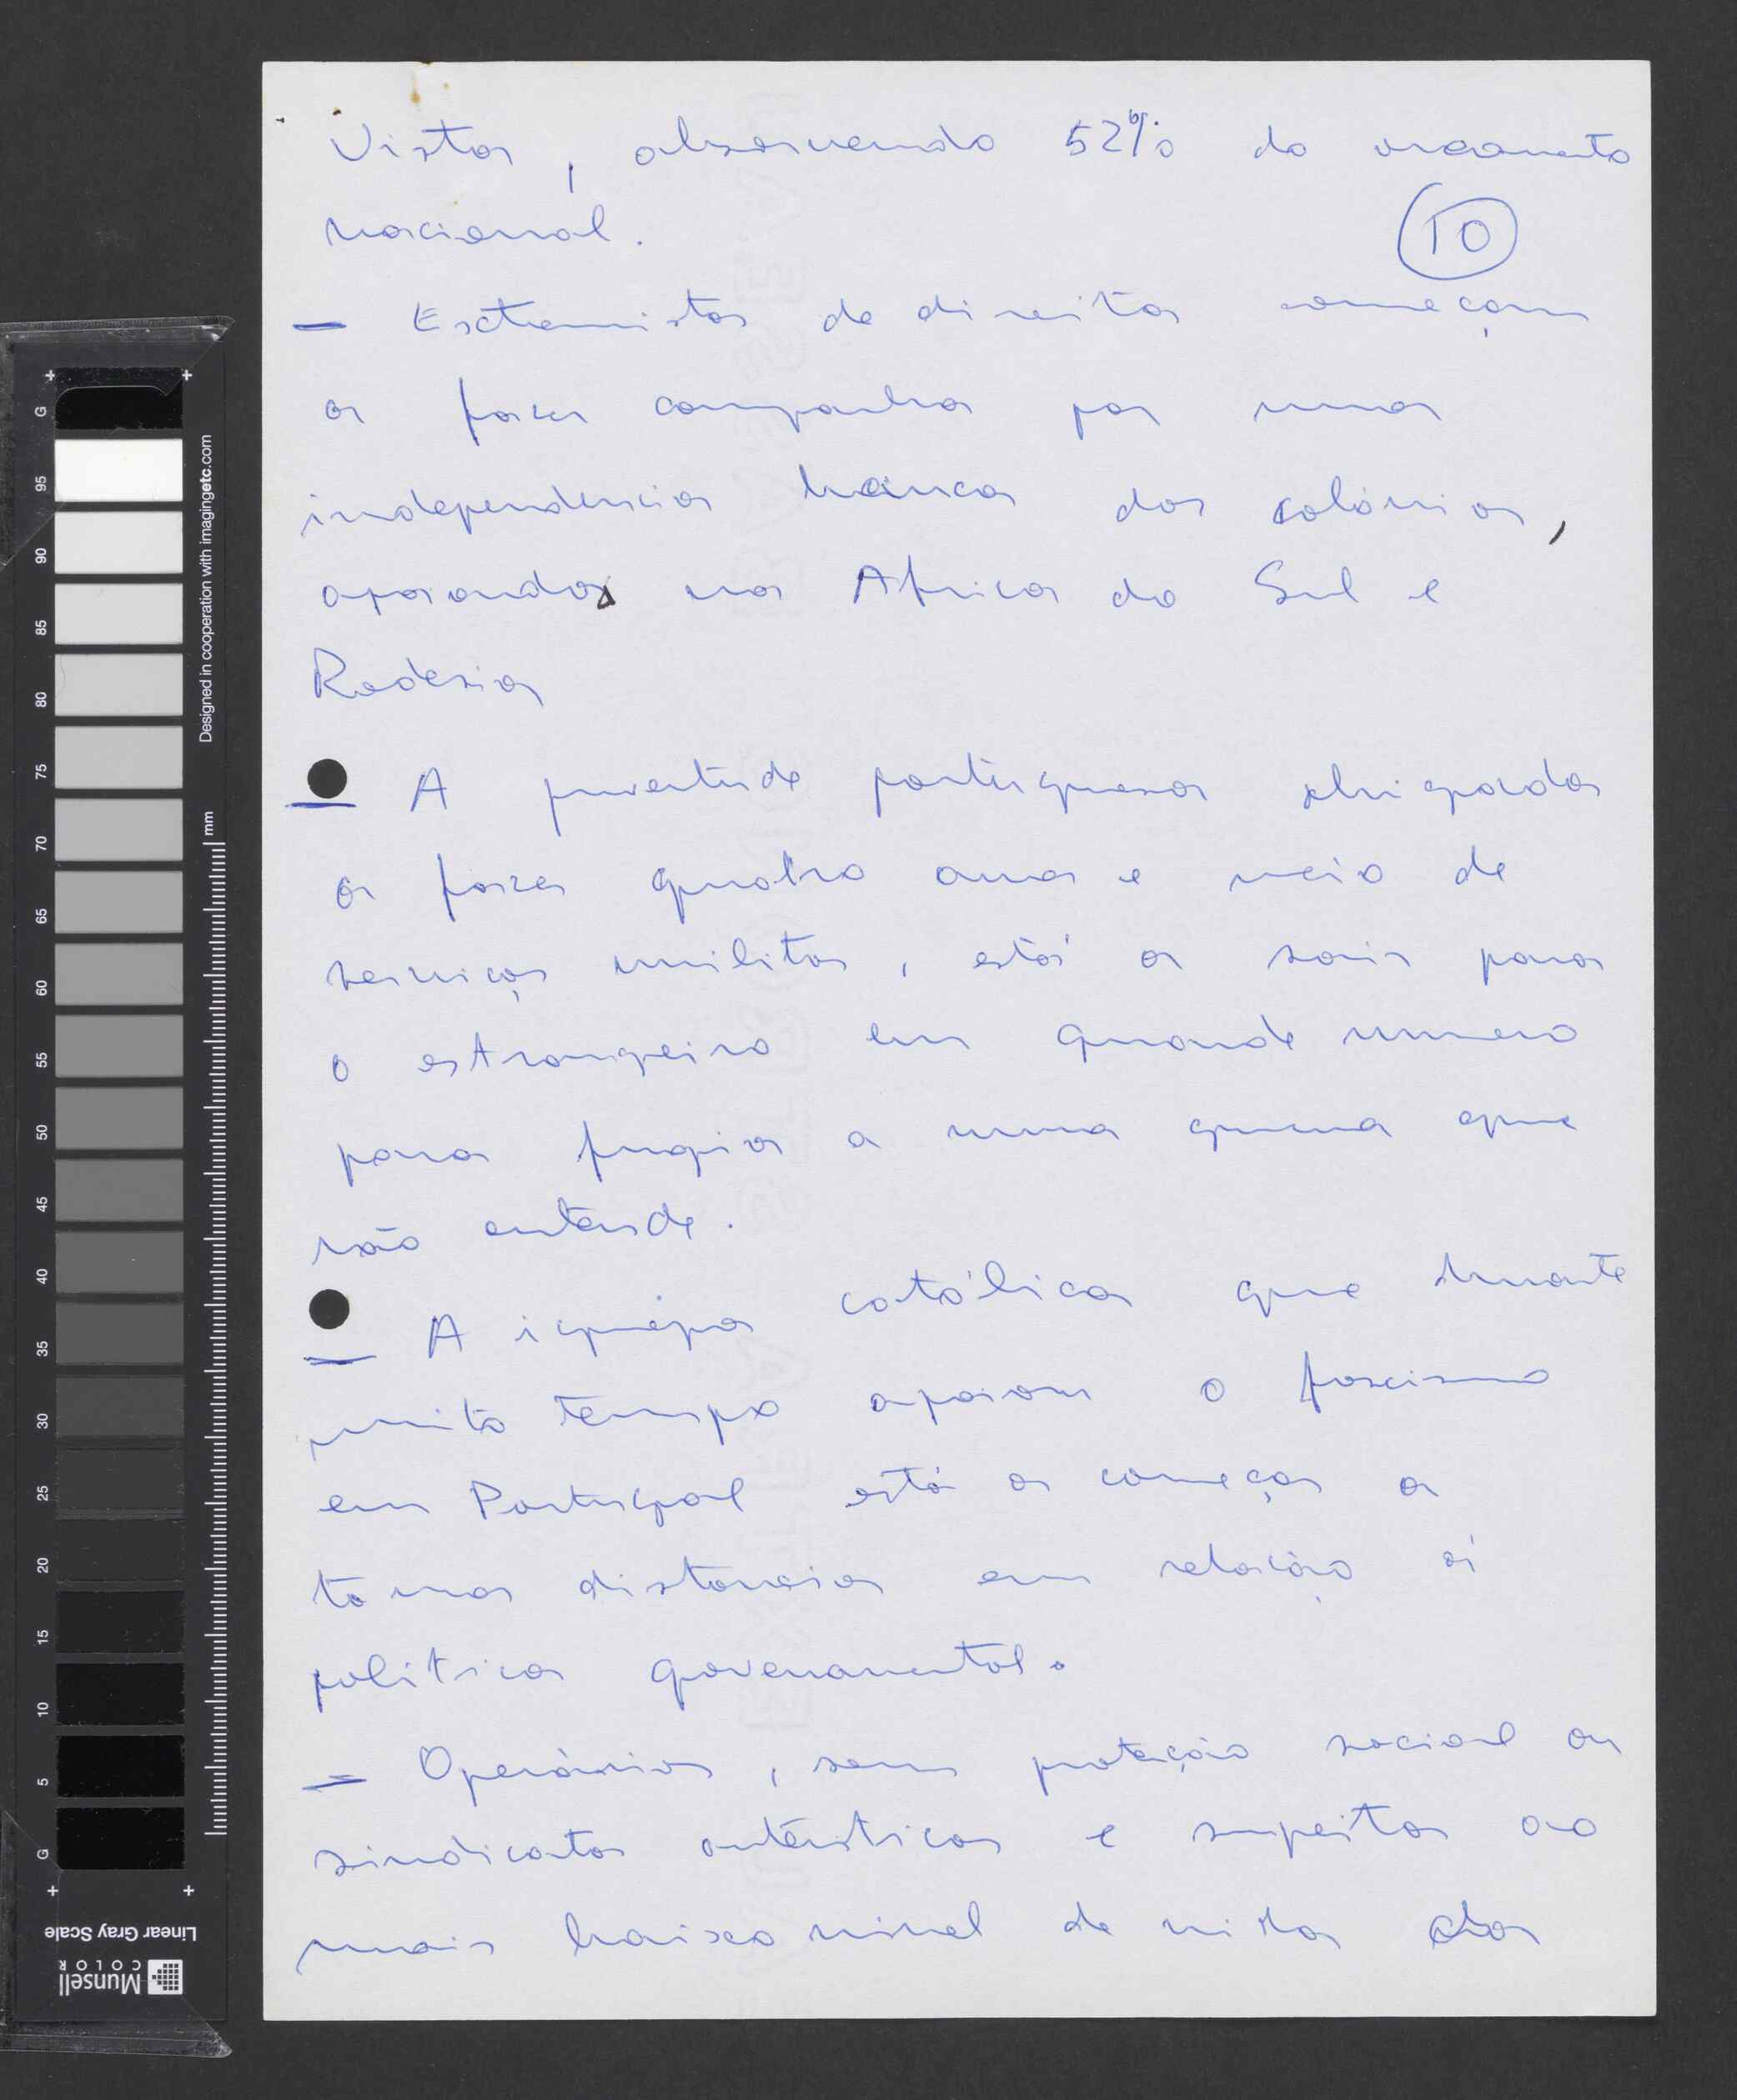 Vista, absorvendo 52% do orçamento
nacional.
10
— Extremistas de direita começam
a fazer campanha por uma
independencia branca das colónias,
apoiando na Africa do Sul e
Rodesia
— A juventude portuguesa obrigada
a fazer quatro anos e meio de
serviço militar, está a sair para
o estrangeiro em grande numero
para fugir a uma guerra que
não entende.
— A igreja católica que durante
muito tempo apoiou o fascismo
em Portugal está a começar a
tomar distancia em relação á
politica governamental.
— Operários, sem proteção social ou
sindicatos autênticos e sujeitos ao
mais baixo nivel de vida da
G
95
90
85
80
75
70
65
60
55
50
45
40
35
30
25
20
15
10
5
G
mm
Designed in cooperation with imagingetc.com
Linear Gray Scale
Munsell
COLOR